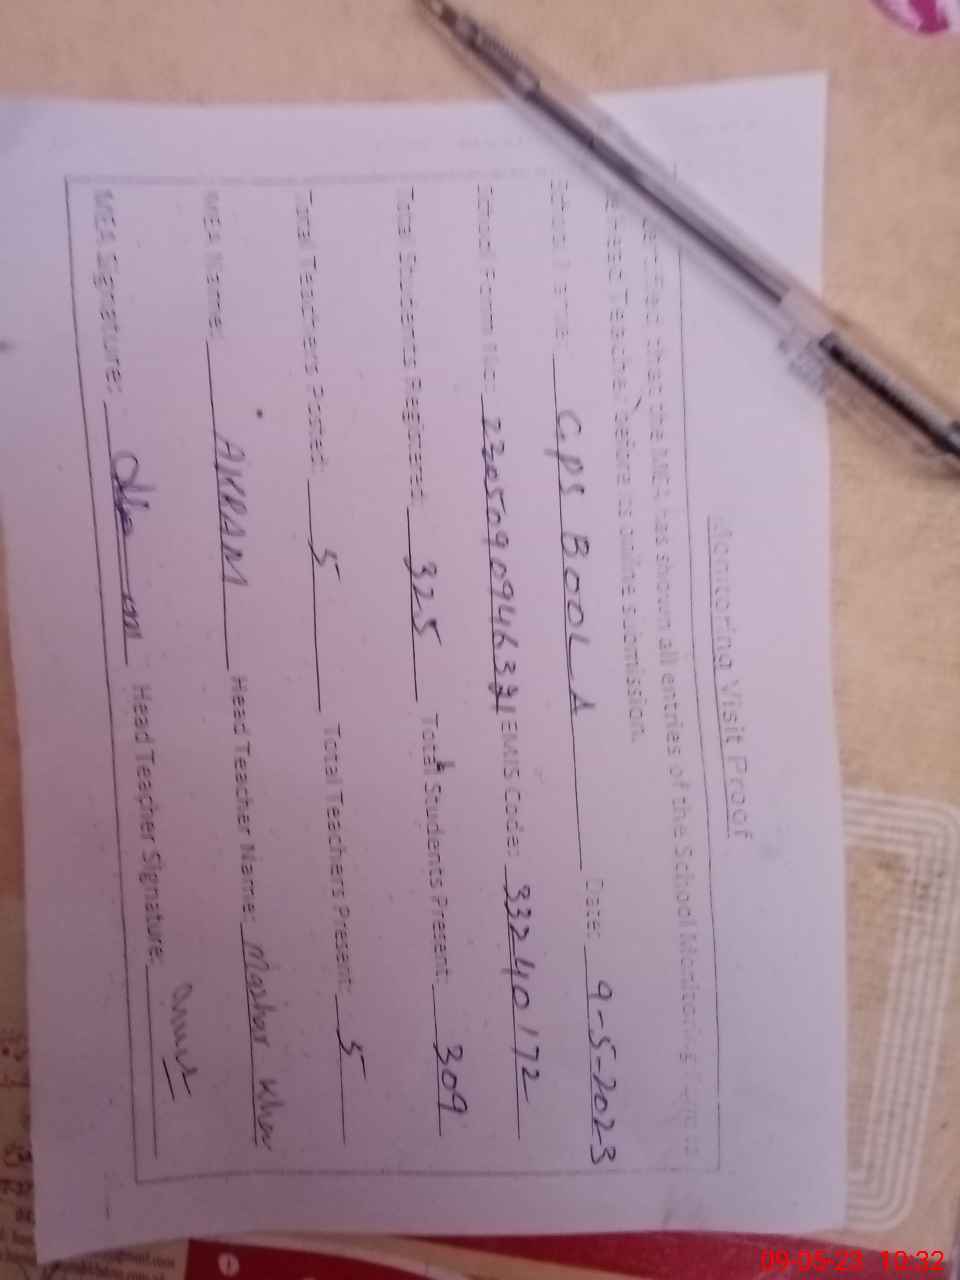 Monitoring Visit Proof
that the MEA has shown all entries of the School Monitoring
Head Teacher before its online submission.
School Name: GPS BOOLA Date: 9-5-2023
School Form No: EMIS Code: 33240172
Total Students Registered: 325 Total Students Present: 309
Total Teachers Posted: 5 Total Teachers Present: 5
MEA Name: AKRAM Head Teacher Name: Khan
MEA Signature: Head Teacher Signature:
09-05-23 10:32